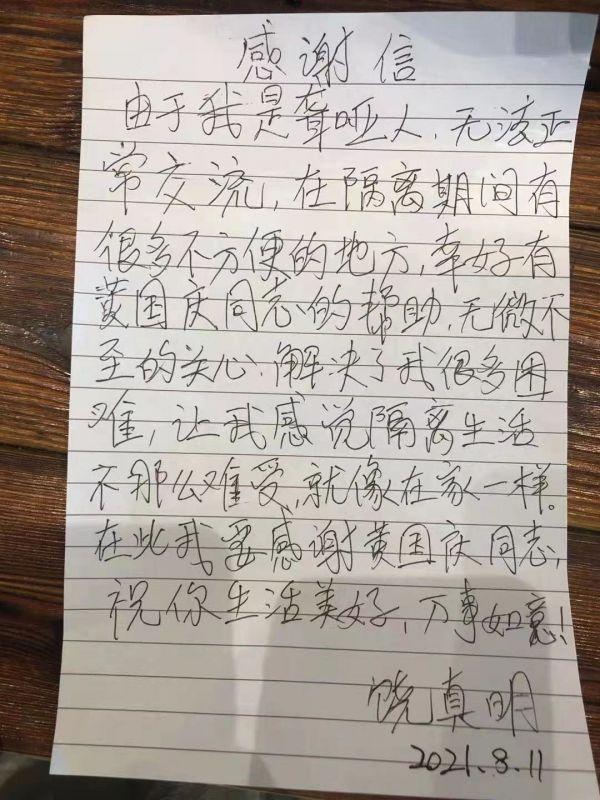 感谢信
由于我是聋哑人，无法正
常交流，在隔离期间有
很多不方便的地方，幸好有
黄国庆同志的帮助，无微不
至的关心，解决了我很多困
难，让我感觉隔离生活
不那么难受，就像在家一样。
在此我要感谢黄国庆同志，
祝你生活美好，万事如意！
饶真明
2021.8.11